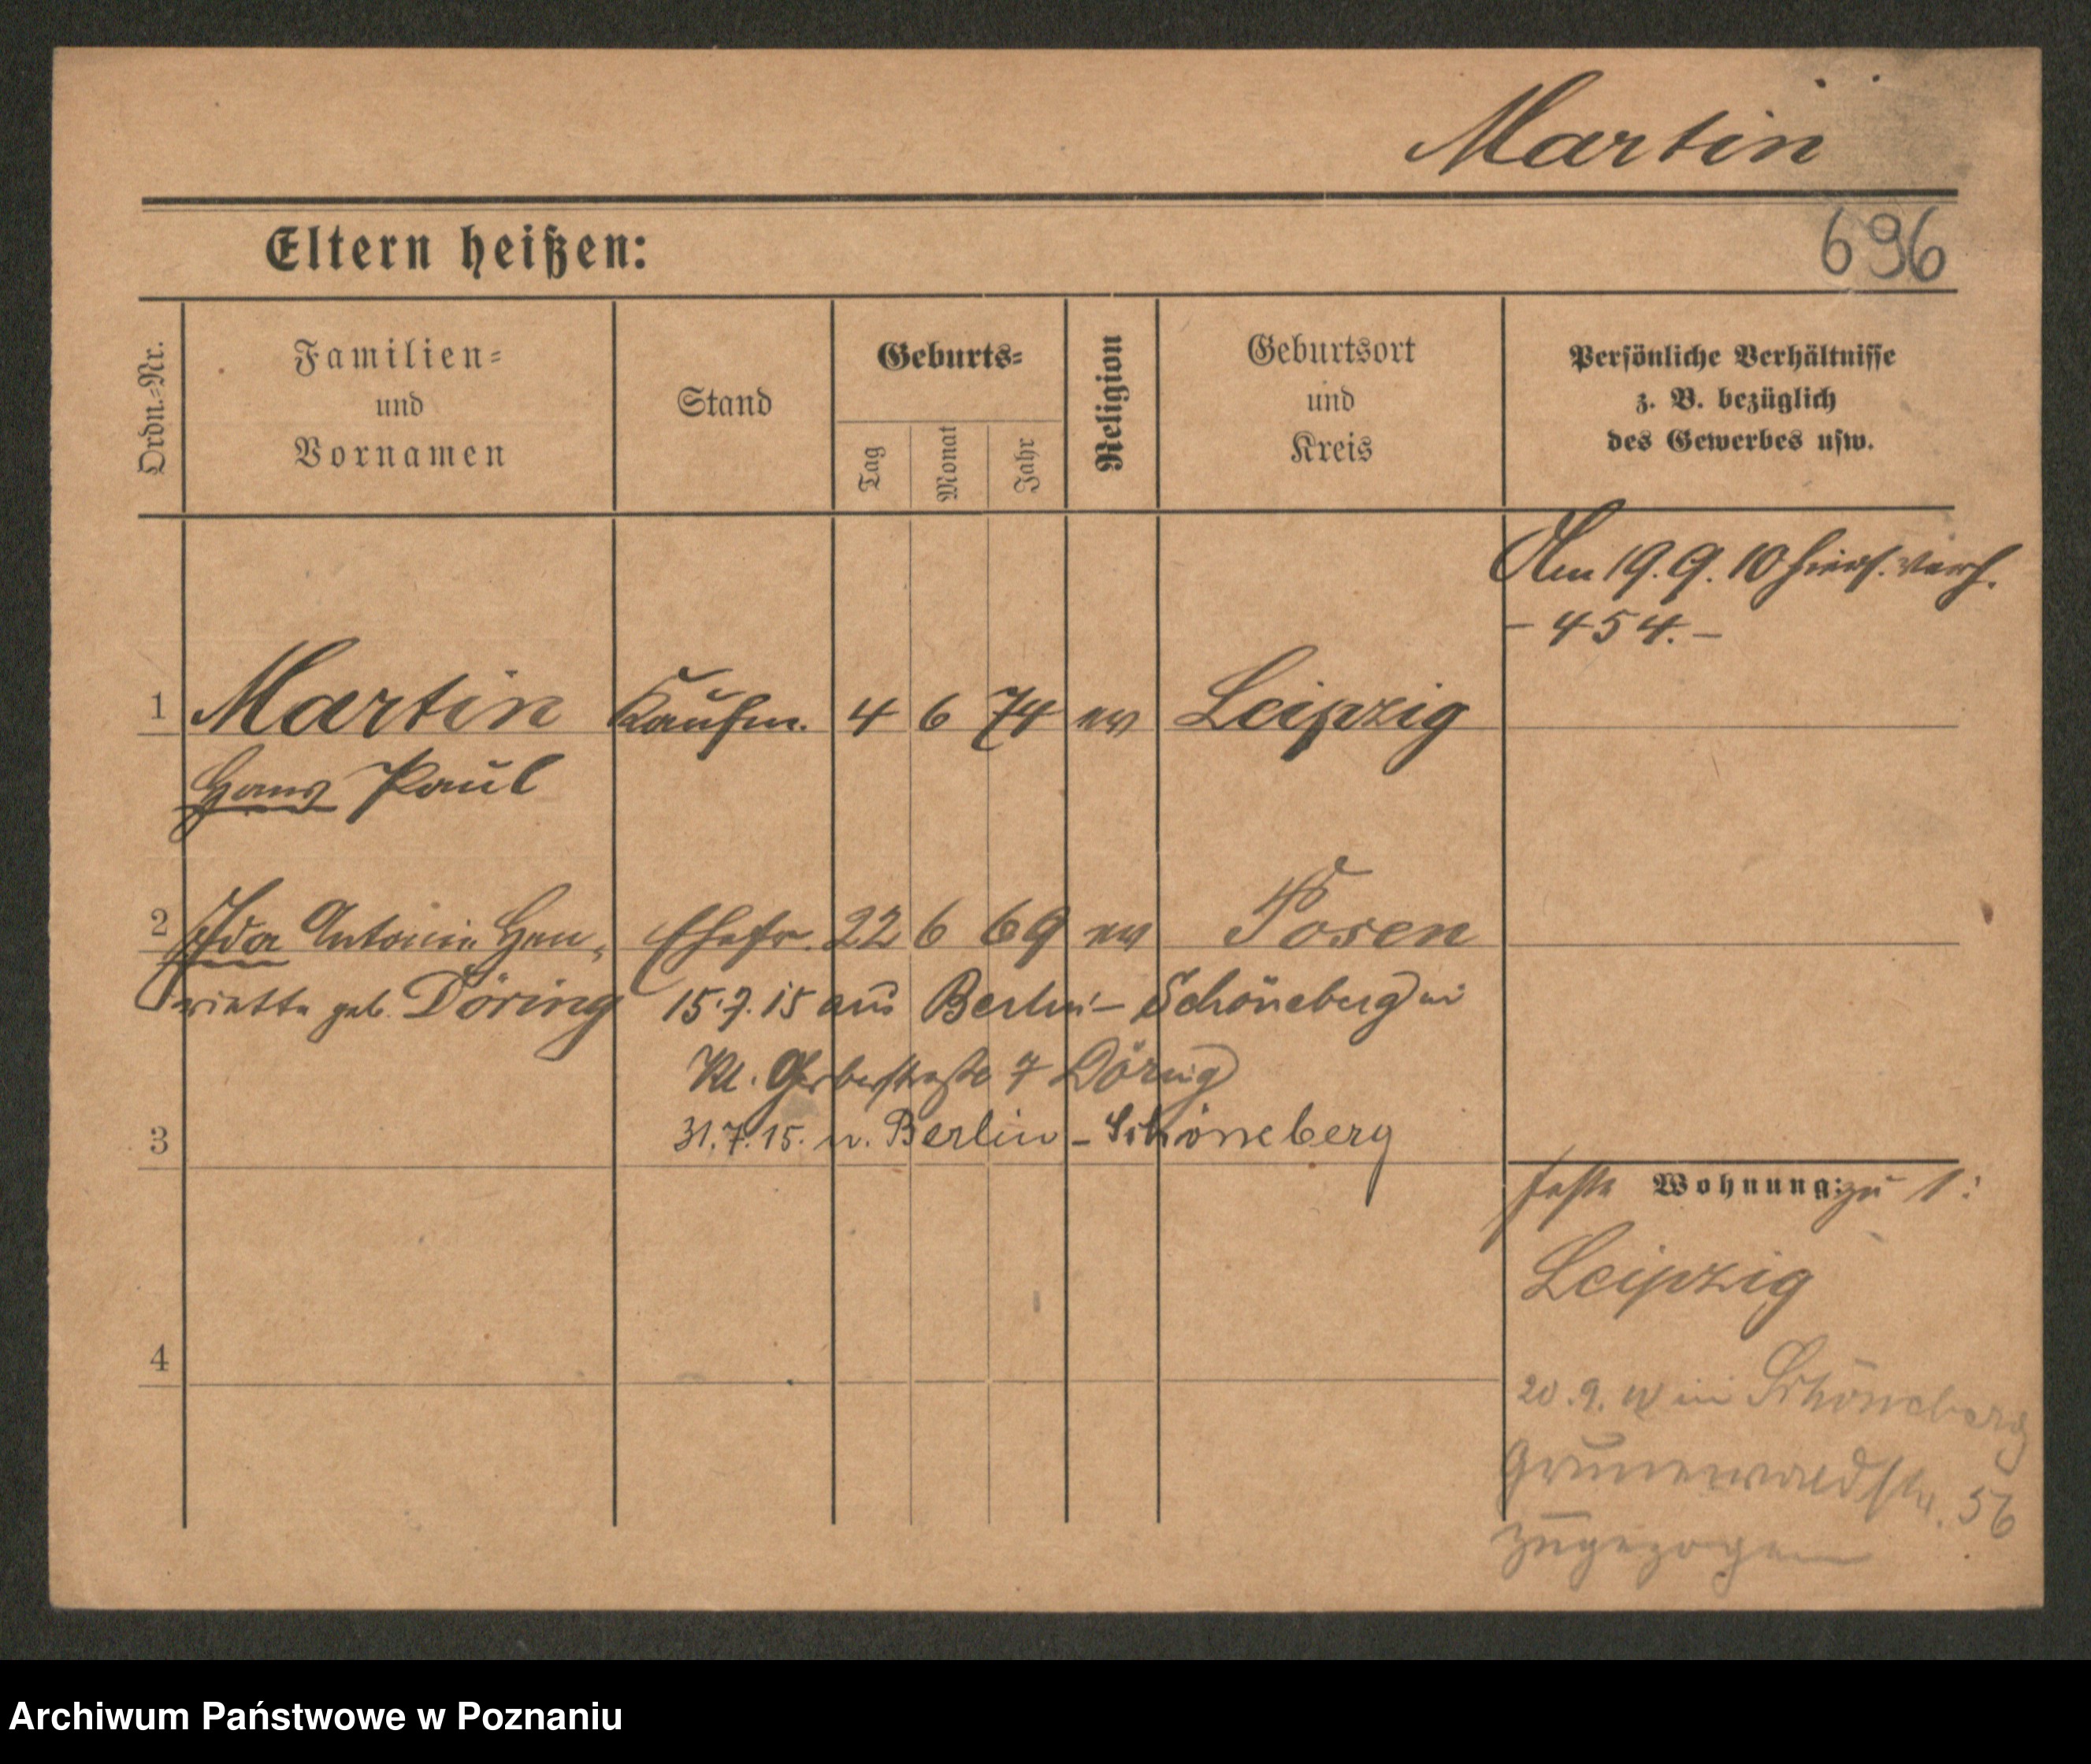 Martin
696
Eltern heißen:
Ordn.-Nr.
Familien- und Vornamen
Stand
Geburts-
Tag
Monat
Jahr
Religion
Geburtsort und Kreis
Persönliche Verhältnisse
z. B. bezüglich
des Gewerbes usw.
Am 19.9.10 hiers. verh.
- 454. -
1 Martin Kaufm. 4 6 74 ev Leipzig
Hans Paul
2 Ida Antonie Hen- Ehefr. 22 6 69 ev Posen
riette geb. Döring 15.7.15 aus Berlin - Schöneberg in
Kl. Gerberstraße 7 Döring
3 31.7.15. n. Berlin - Schöneberg
feste Wohnung: zu 1:
Leipzig
4
20.9. in Schöneberg
Grunewaldstr. 56
zugezogen
Archiwum Państwowe w Poznaniu